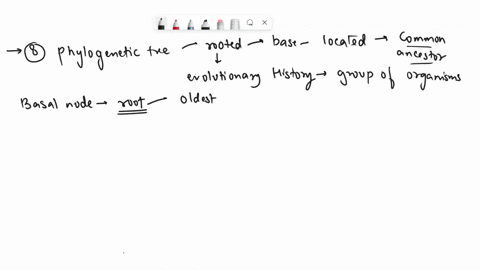 → 8 phylogenetic tree — rooted → base — located → Common ancestor
↓
evolutionary History → group of organisms
Basal node → root — oldest